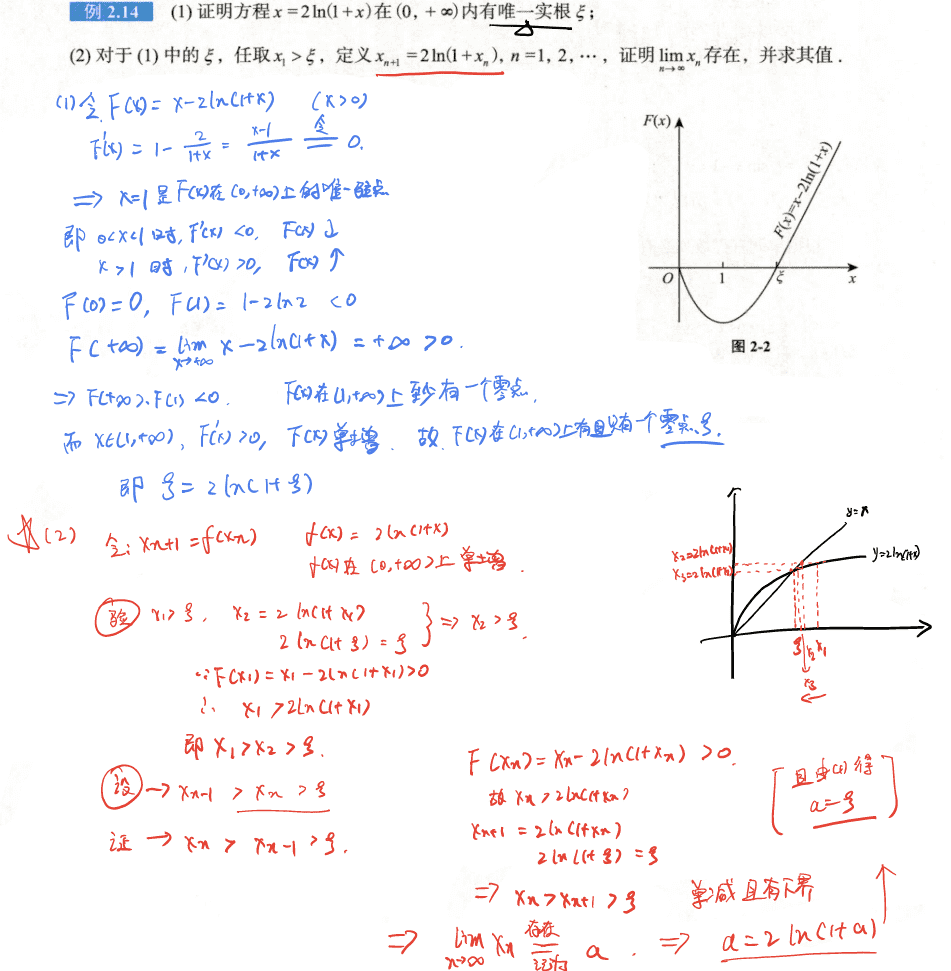 例 2.14 (1) 证明方程 x = 2ln(1+x) 在 (0, +∞) 内有唯一实根 ξ;
(2) 对于 (1) 中的 ξ, 任取 x₁ > ξ, 定义 xₙ₊₁ = 2ln(1+xₙ), n = 1, 2, ⋯, 证明 lim n→∞ xₙ 存在, 并求其值.
(1) 令 F(x) = x-2ln(1+x) (x>0)
F'(x) = 1 - 2/(1+x) = (x-1)/(1+x) 令= 0.
⇒ x=1 是 F(x)在(0,+∞)上的唯一驻点
即 0<x<1 时, F'(x) <0, F(x) ↓
x>1 时, F'(x) >0, F(x) ↑
F(0)=0, F(1) = 1-2ln2 <0
F(+∞) = lim x→+∞ x-2ln(1+x) = +∞ >0.
⇒ F(+∞)·F(1) <0. F(x)在(1,+∞)上至少有一个零点.
而 x∈(1,+∞), F'(x) >0, F(x)单增. 故 F(x)在(1,+∞)上有且只有一个零点ξ.
即 ξ = 2ln(1+ξ)
F(x)
F(x)=x-2ln(1+x)
O 1 ξ x
图 2-2
(2) 令: xₙ₊₁ = f(xₙ) f(x) = 2ln(1+x)
f(x)在 (0,+∞)上单增.
验 x₁>ξ, x₂ = 2ln(1+x₁)
2ln(1+ξ) = ξ } ⇒ x₂ >ξ.
∵ F(x₁) = x₁-2ln(1+x₁)>0
∴ x₁ >2ln(1+x₁)
即 x₁>x₂>ξ.
设 → xₙ₋₁ > xₙ >ξ
证 → xₙ > xₙ₋₁ >ξ.
y=x
x₂=2ln(1+x₁)
y=2ln(1+x)
x₃=2ln(1+x₂)
ξ x₂ x₁
x₃
F(xₙ) = xₙ-2ln(1+xₙ) >0.
故 xₙ >2ln(1+xₙ)
xₙ₊₁ = 2ln(1+xₙ)
2ln(1+ξ) = ξ
⇒ xₙ>xₙ₊₁ >ξ 单减且有下界
⇒ lim n→∞ xₙ 存在=记为 a. ⇒ a=2ln(1+a)
[且由(1)得
a=ξ]